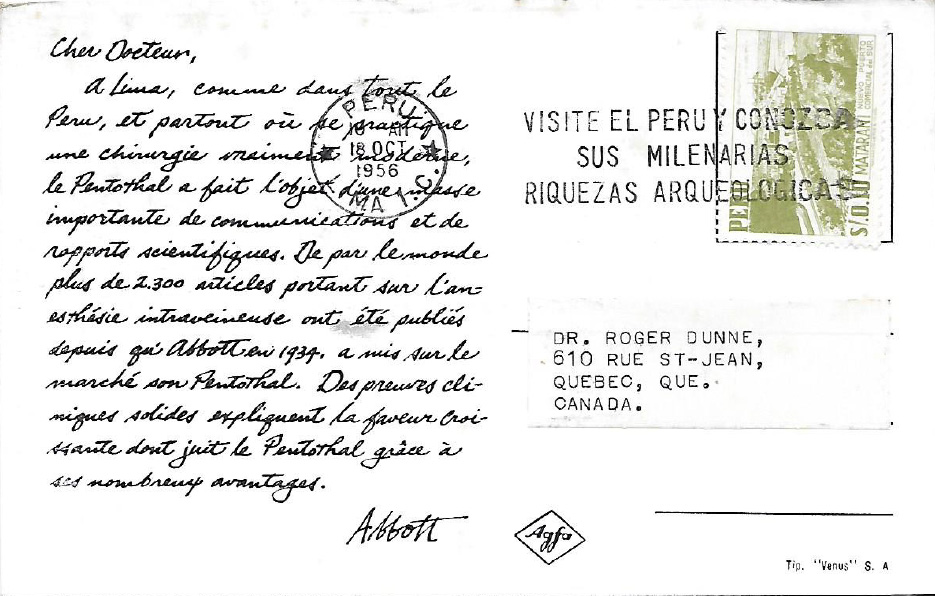 Cher Docteur,
A Lima, comme dans tout le
Peru, et partout où se pratique
une chirurgie vraiment moderne,
le Pentothal a fait l'objet d'une masse
importante de communications et de
rapports scientifiques. De par le monde
plus de 2.300 articles portant sur l'an-
esthésie intraveineuse ont été publiés
depuis qu'Abbott en 1934. a mis sur le
marché son Pentothal. Des preuves cli-
niques solides expliquent la faveur croi-
ssante dont juit le Pentothal grâce à
ses nombreux avantages.
Abbott
PERU
18 OCT
1956
LIMA
VISITE EL PERU Y CONOZCA
SUS MILENARIAS
RIQUEZAS ARQUEOLOGICAS
NUEVO PUERTO
COMERCIAL del SUR
MATARANI
S/O.
DR. ROGER DUNNE,
610 RUE ST-JEAN,
QUEBEC, QUE.
CANADA.
Agfa
Tip. "Venus" S. A